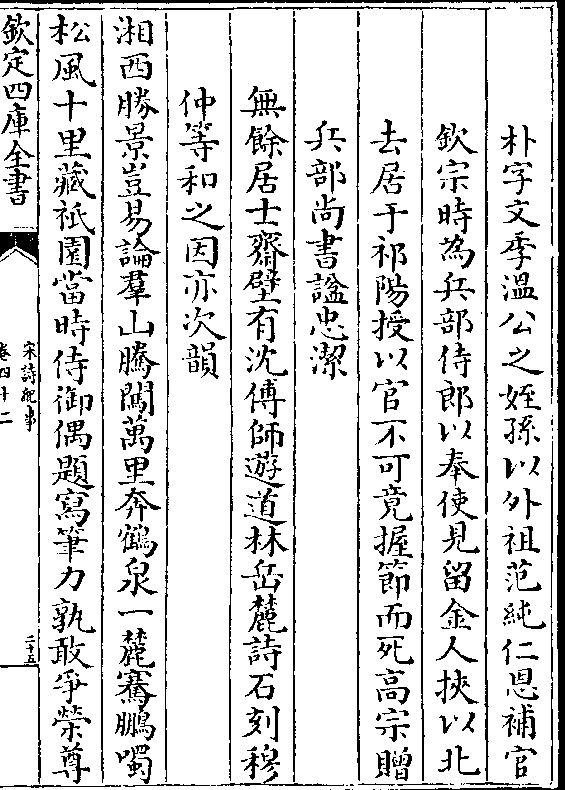 朴字文季溫公之姪孫以外祖范純仁恩補官
欽宗時為兵部侍郎以奉使見留金人挾以北
去居于祁陽授以官不可竟握節而死高宗贈
兵部尚書諡忠潔
無餘居士齋壁有沈傅師遊道林岳麓詩石刻穆
仲等和之因亦次韻
湘西勝景豈易論羣山騰闖萬里奔鶴泉一麓騫鵬噣
松風十里藏祗園當時侍御偶題寫筆力孰敢爭榮尊
欽定四庫全書
宋詩紀事
卷四十二
二十五